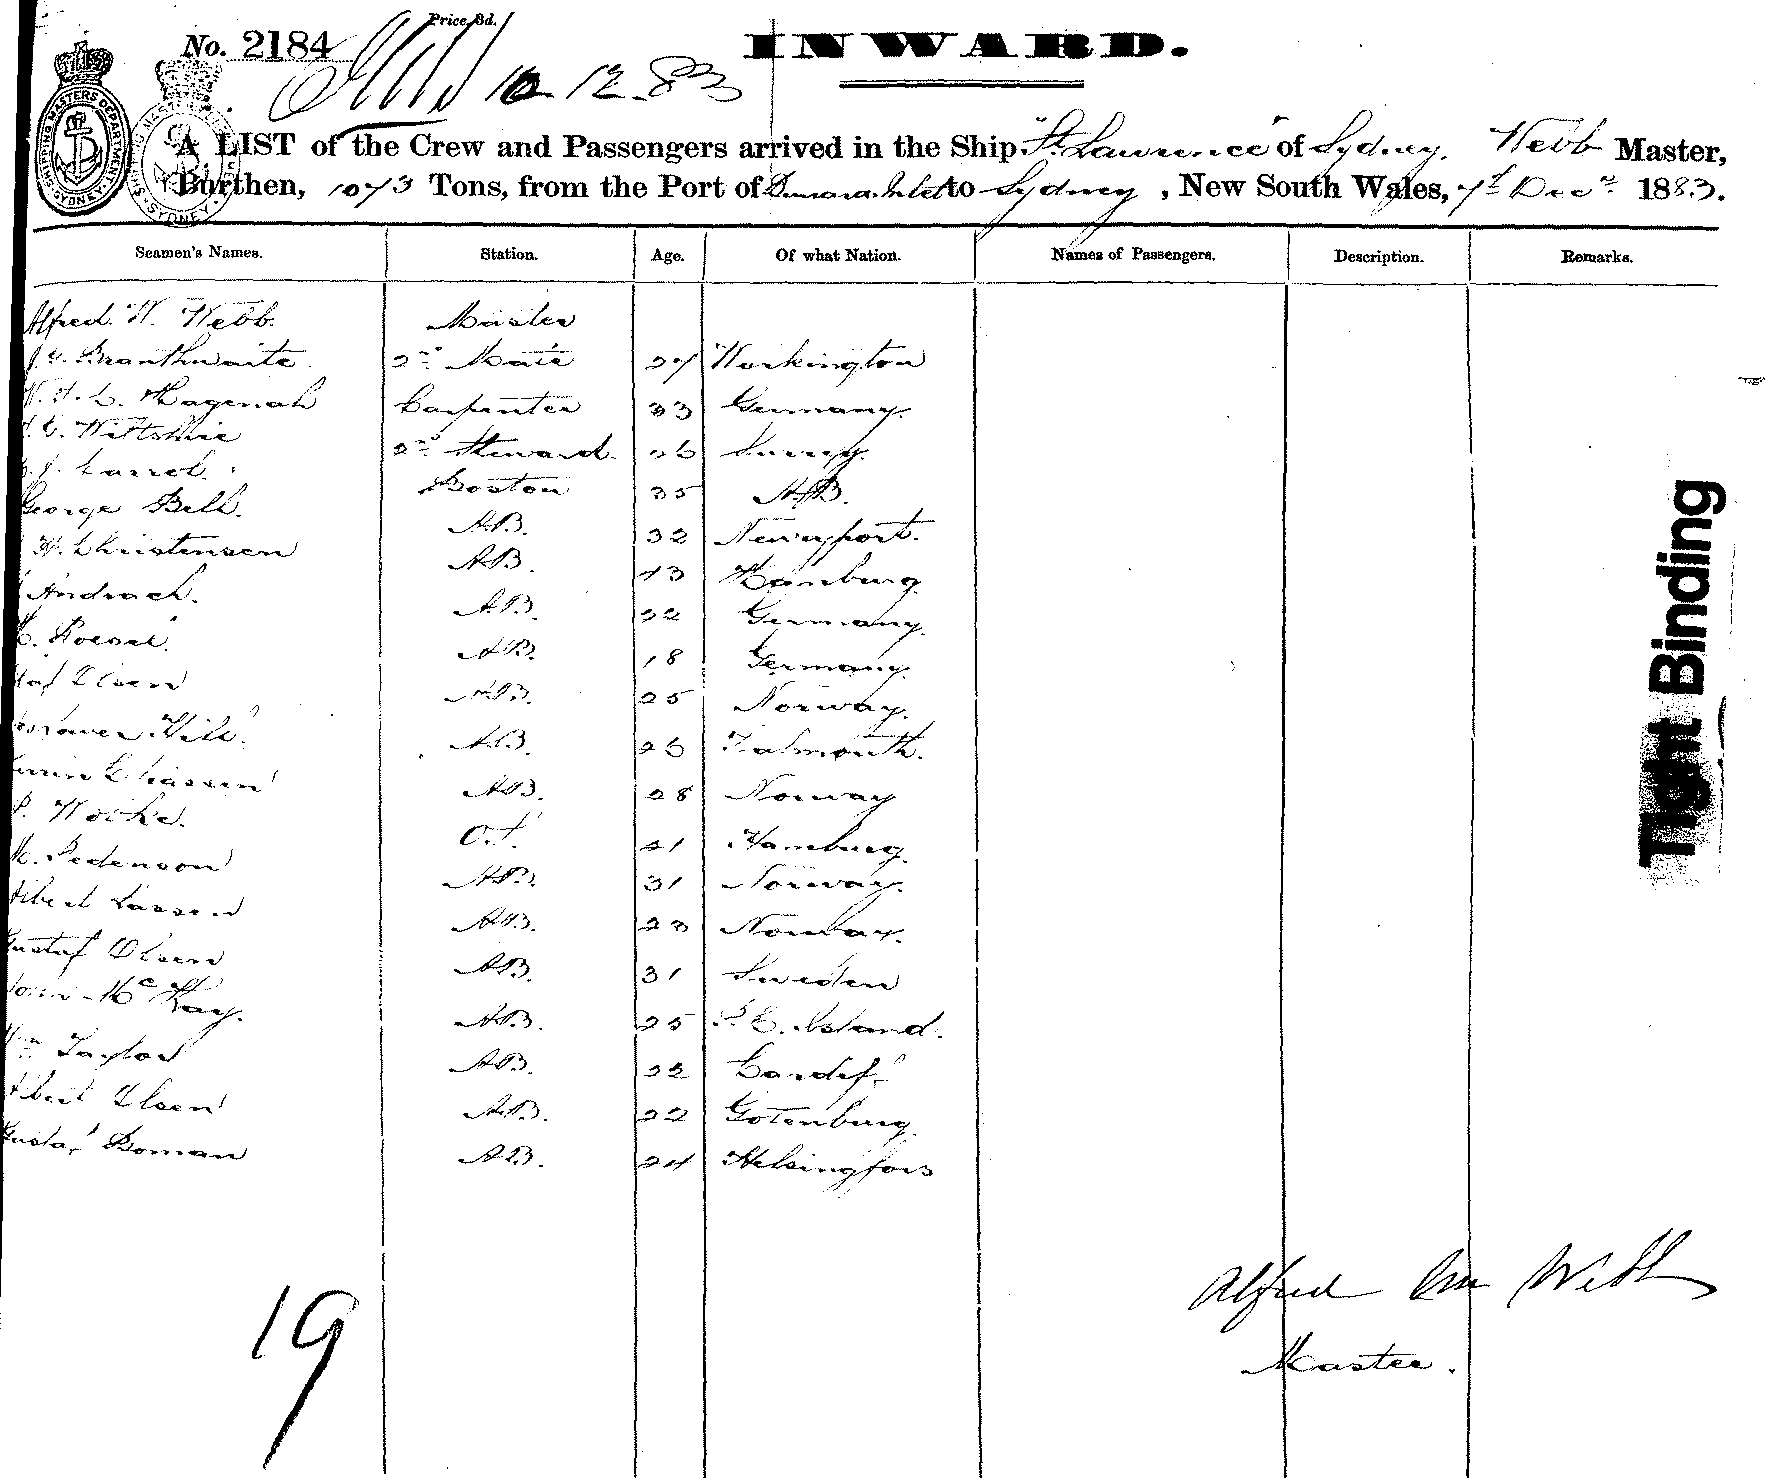 Price 3d.
No. 2184
INWARD.
10 12.83
A LIST of the Crew and Passengers arrived in the Ship "St. Lawrence" of Sydney, Webb Master,
Burthen, 1073 Tons, from the Port of to Sydney, New South Wales, 7th Decr. 1883.
Seamen's Names. Station. Age. Of what Nation. Names of Passengers. Description. Remarks.
Alfred W. Webb. Master
Branthwaite. 2nd Mate 27 Workington
Hagenah Carpenter 33 Germany.
Wiltshire 2nd Steward. 26 Surrey.
Carrol. Boston 35 A.B.
George Bell. A.B. 32 Newport.
H. Christensen A.B. 43 Hamburg.
Andrach. A.B. 22 Germany.
A.B. 18 Germany.
Olsen A.B. 25 Norway.
Hill. A.B. 26 Falmouth.
Eliassen A.B. 28 Norway
P. O.S. 21 Hamburg.
Pedenson A.B. 31 Norway.
Albert Larsen A.B. 23 Norway.
Gustaf Olsen A.B. 31 Sweden
John McKay. A.B. 25 P. E. Island.
Wm Taylor A.B. 22 Cardiff
Albert Olsen A.B. 22 Gotenburg.
Gustaf Boman A.B. 24 Helsingfors
Tight Binding
19
Alfred Wm Webb
Master.